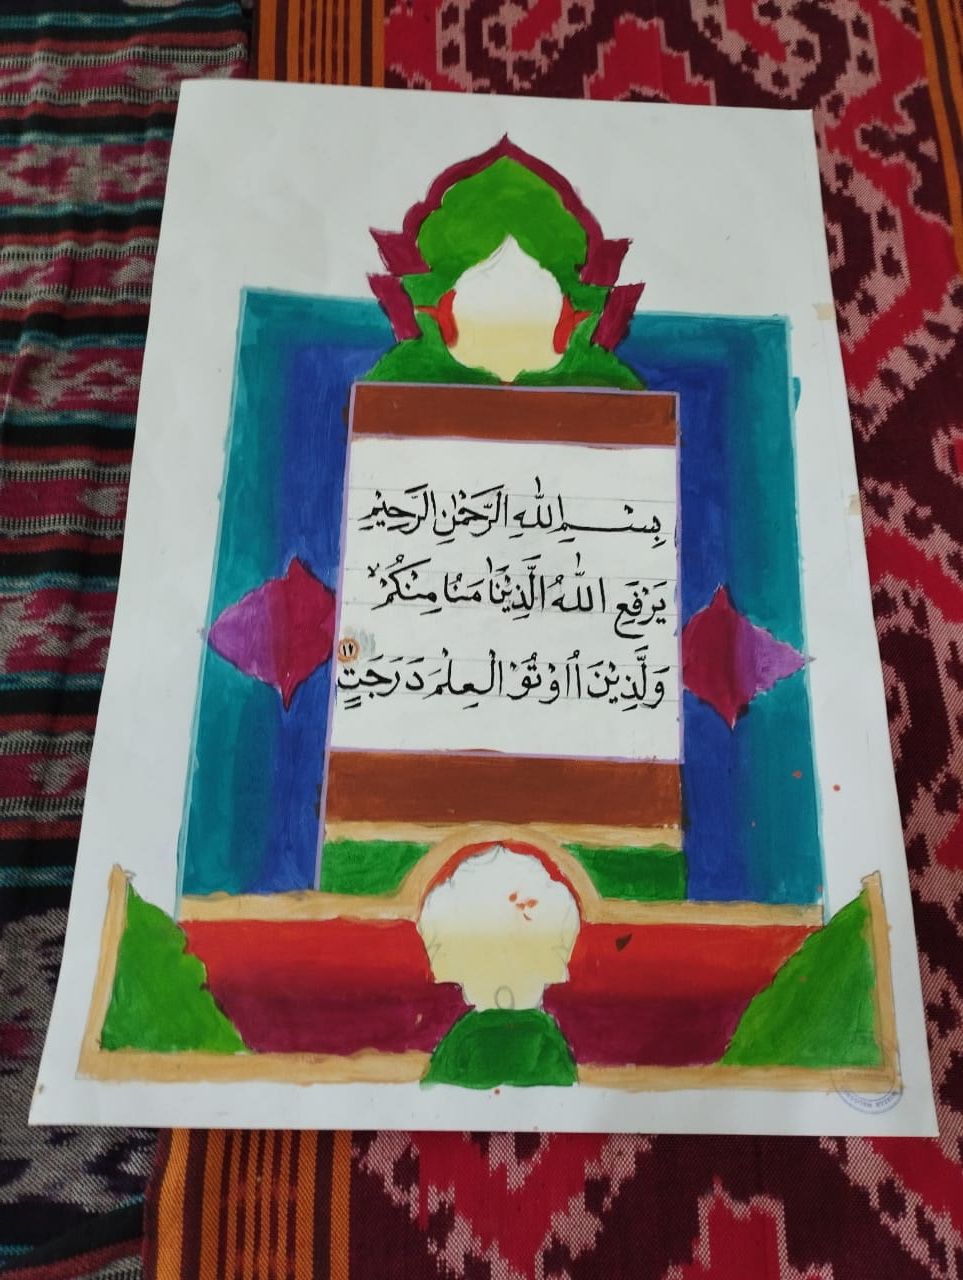 بِسْمِ اللّٰهِ الرَّحْمٰنِ الرَّحِيْمِ
يَرْفَعِ اللّٰهُ الَّذِيْنَاٰ مَنُا مِنْكُمْۙ
وَلَّذِيْنَ اُاوْتُوْ الْعِلْمَ دَرَجَتٍ ١٢